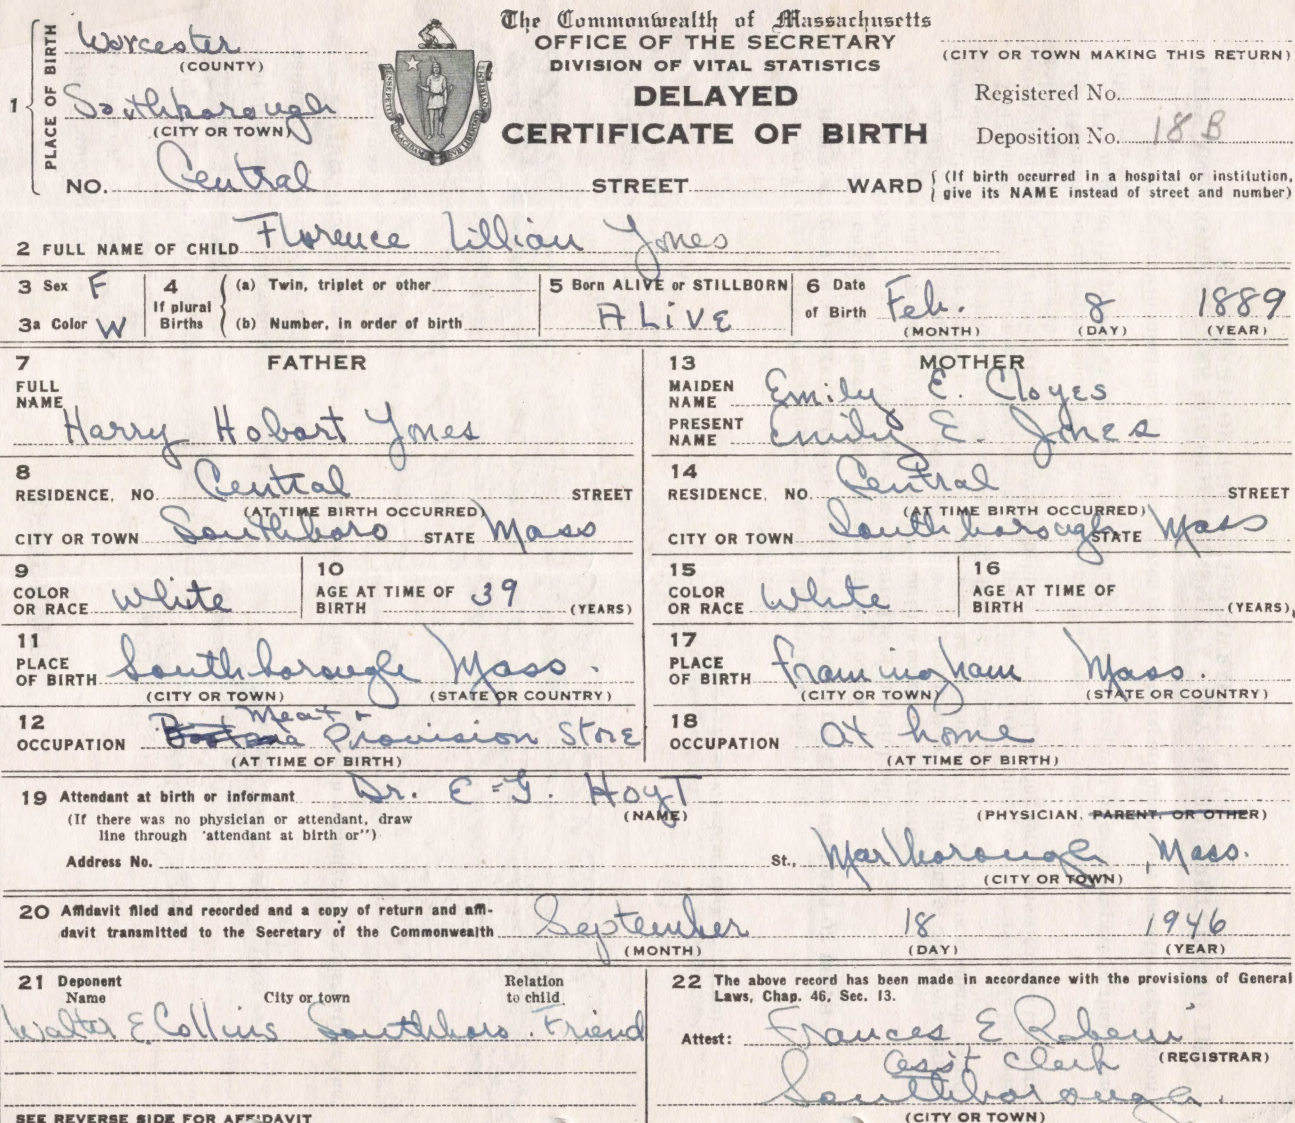 The Commonwealth of Massachusetts
OFFICE OF THE SECRETARY
DIVISION OF VITAL STATISTICS
DELAYED
CERTIFICATE OF BIRTH
(CITY OR TOWN MAKING THIS RETURN)
Registered No.
Deposition No. 18 B
1 PLACE OF BIRTH
Worcester
(COUNTY)
Southborough
(CITY OR TOWN)
NO. Central STREET WARD (If birth occurred in a hospital or institution, give its NAME instead of street and number)
2 FULL NAME OF CHILD Florence Lillian Jones
3 Sex F
3a Color W
4 If plural Births
(a) Twin, triplet or other
(b) Number, in order of birth
5 Born ALIVE or STILLBORN
ALiVE
6 Date of Birth Feb. 8 1889
(MONTH) (DAY) (YEAR)
7 FATHER
FULL NAME
Harry Hobart Jones
8
RESIDENCE, NO. Central STREET
(AT TIME BIRTH OCCURRED)
CITY OR TOWN Southboro STATE Mass
9
COLOR OR RACE White
10
AGE AT TIME OF BIRTH 39 (YEARS)
11
PLACE OF BIRTH Southborough Mass.
(CITY OR TOWN) (STATE OR COUNTRY)
12
OCCUPATION Meat + Provision Store
(AT TIME OF BIRTH)
13 MOTHER
MAIDEN NAME Emily E. Cloyes
PRESENT NAME Emily E. Jones
14
RESIDENCE, NO. Central STREET
(AT TIME BIRTH OCCURRED)
CITY OR TOWN Southborough STATE Mass
15
COLOR OR RACE White
16
AGE AT TIME OF BIRTH (YEARS)
17
PLACE OF BIRTH Framingham Mass.
(CITY OR TOWN) (STATE OR COUNTRY)
18
OCCUPATION at home
(AT TIME OF BIRTH)
19 Attendant at birth or informant Dr. E. G. Hoyt
(If there was no physician or attendant, draw (NAME) (PHYSICIAN, PARENT, OR OTHER)
line through 'attendant at birth or")
Address No. St., Marlborough, Mass.
(CITY OR TOWN)
20 Affidavit filed and recorded and a copy of return and affi-
davit transmitted to the Secretary of the Commonwealth September 18 1946
(MONTH) (DAY) (YEAR)
21 Deponent Relation
Name City or town to child
Walter E. Collins Southboro. Friend
SEE REVERSE SIDE FOR AFFIDAVIT
22 The above record has been made in accordance with the provisions of General
Laws, Chap. 46, Sec. 13.
Attest: Frances E
Ass't Clerk (REGISTRAR)
Southborough.
(CITY OR TOWN)